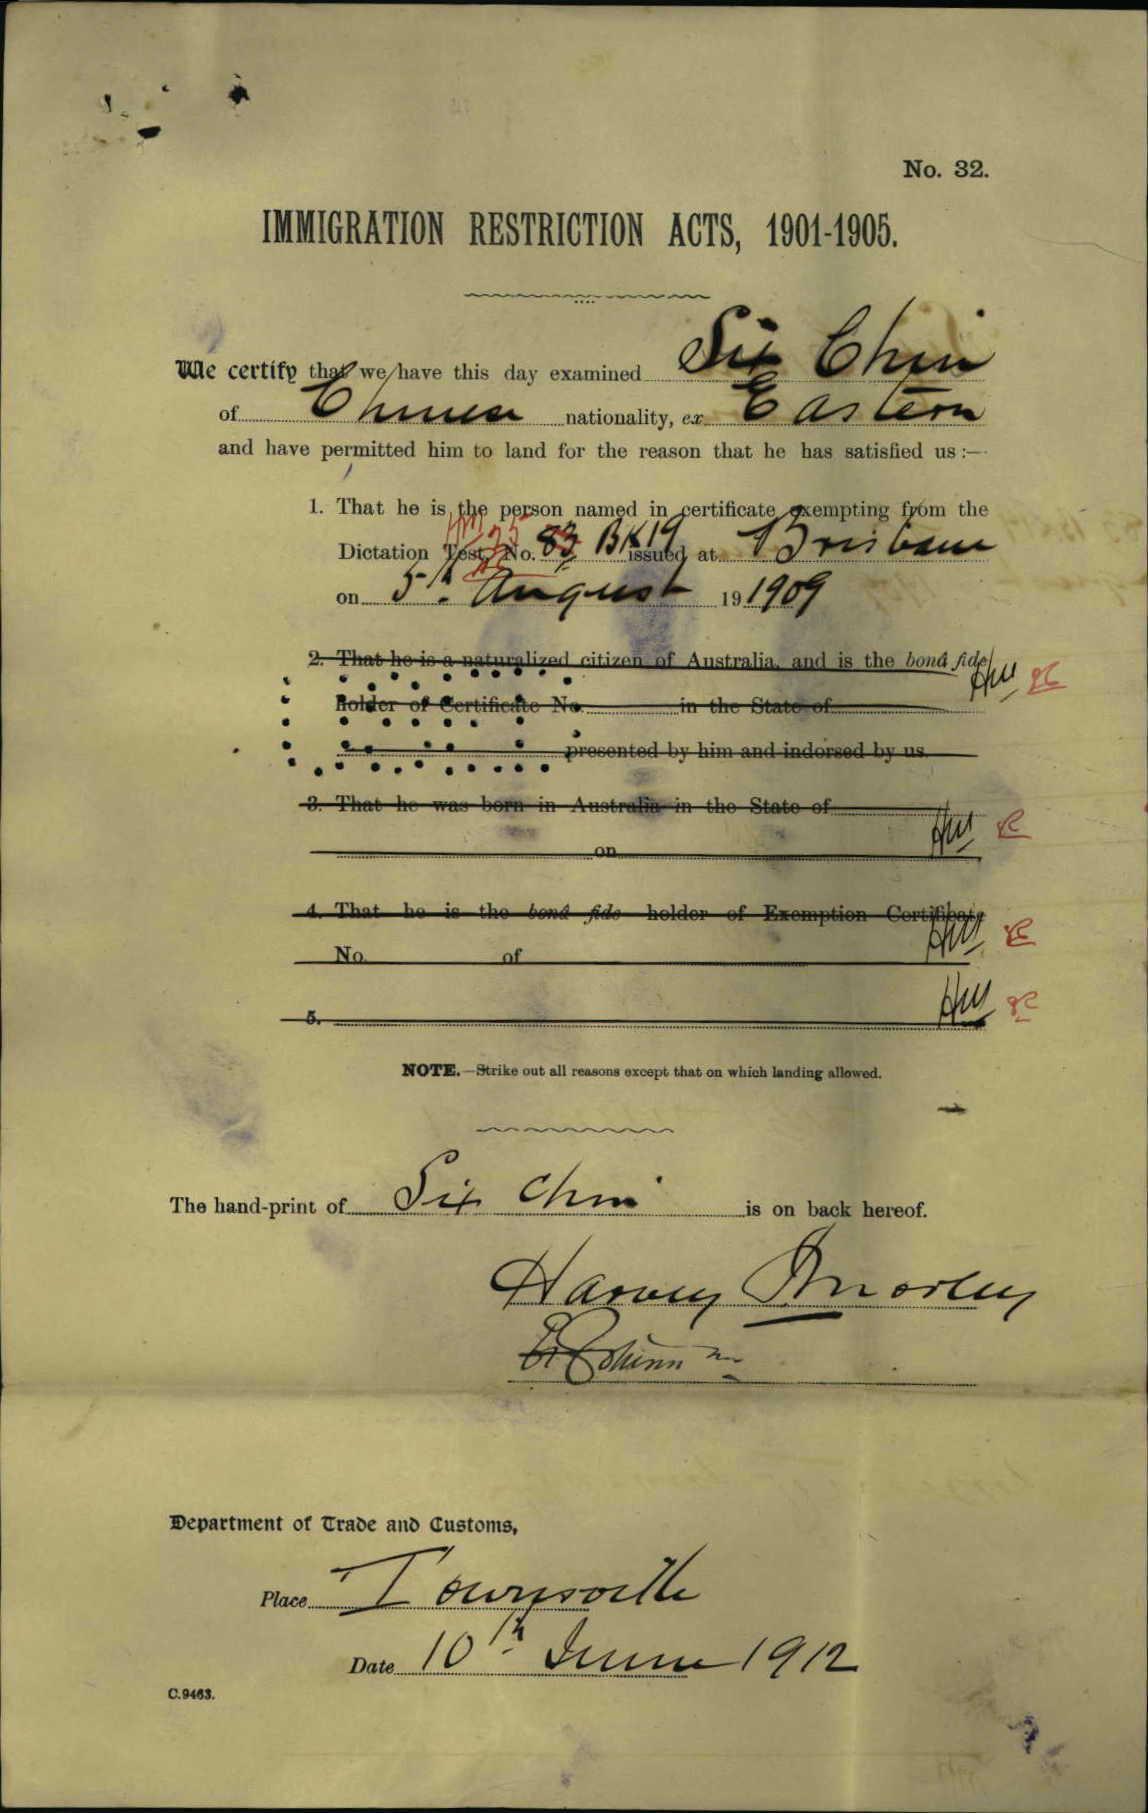 No. 32.
IMMIGRATION RESTRICTION ACTS, 1901-1905.
We certify that we have this day examined Six Chin
of Chinese nationality, ex Eastern
and have permitted him to land for the reason that he has satisfied us :—
1. That he is the person named in certificate exempting from the
Dictation Test, No. 83 25 BK 19 issued at Brisbane
on 5th August 19 1909
2. That he is a naturalized citizen of Australia, and is the bonâ fide
holder of Certificate No. in the State of
presented by him and indorsed by us.
HM
3. That he was born in Australia in the State of
on
HM
4. That he is the bonâ fide holder of Exemption Certificate
No. of
HM
5.
HM
NOTE.—Strike out all reasons except that on which landing allowed.
The hand-print of Six Chin is on back hereof.
Harvey Morley
Department of Trade and Customs,
Place Townsville
Date 10th June 1912
C.9463.